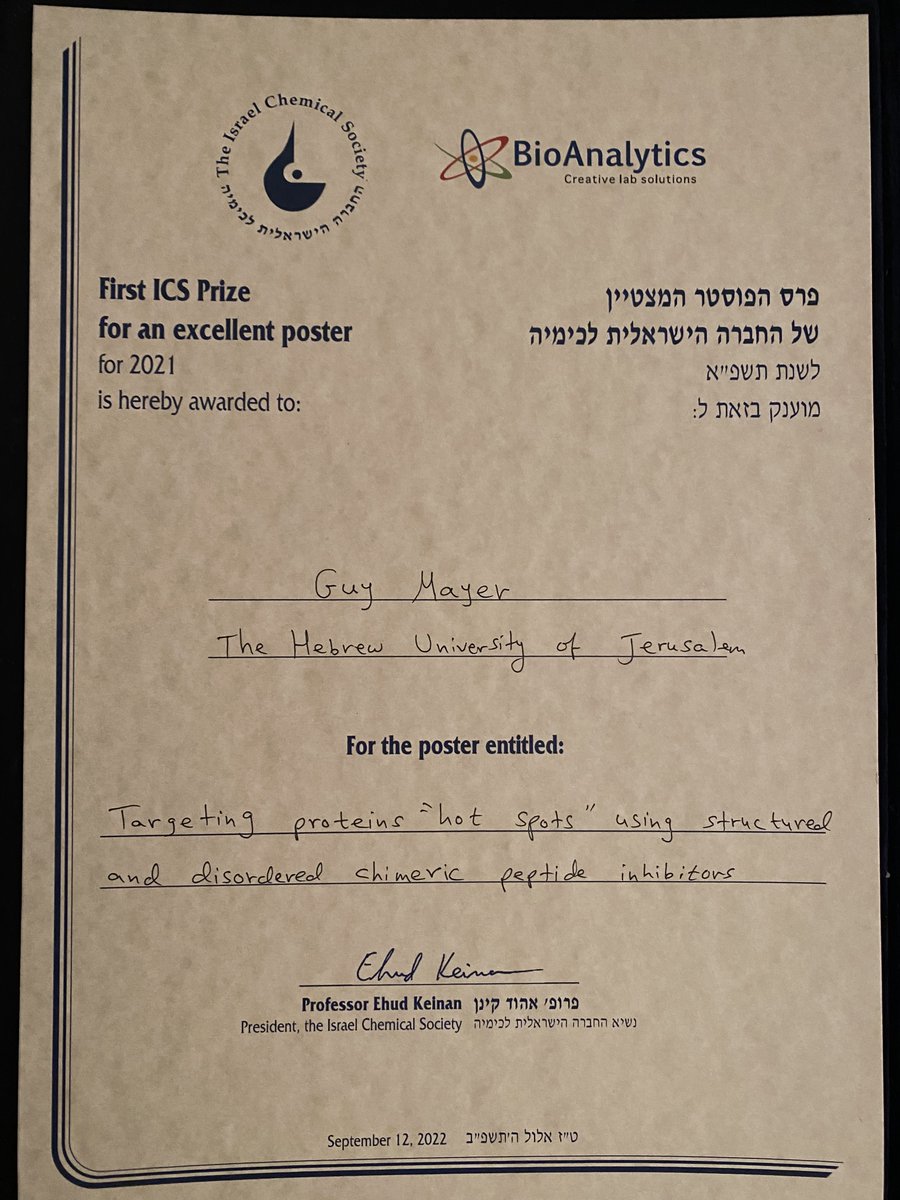 The Israel Chemical Society
החברה הישראלית לכימיה
BioAnalytics
Creative lab solutions
First ICS Prize
for an excellent poster
for 2021
is hereby awarded to:
פרס הפוסטר המצטיין
של החברה הישראלית לכימיה
לשנת תשפ״א
מוענק בזאת ל:
Guy Mayer
The Hebrew University of Jerusalem
For the poster entitled:
Targeting proteins "hot spots" using structured
and disordered chimeric peptide inhibitors
Ehud Keinan
Professor Ehud Keinan פרופ׳ אהוד קינן
President, the Israel Chemical Society נשיא החברה הישראלית לכימיה
September 12, 2022 ט״ז אלול ה׳תשפ״ב